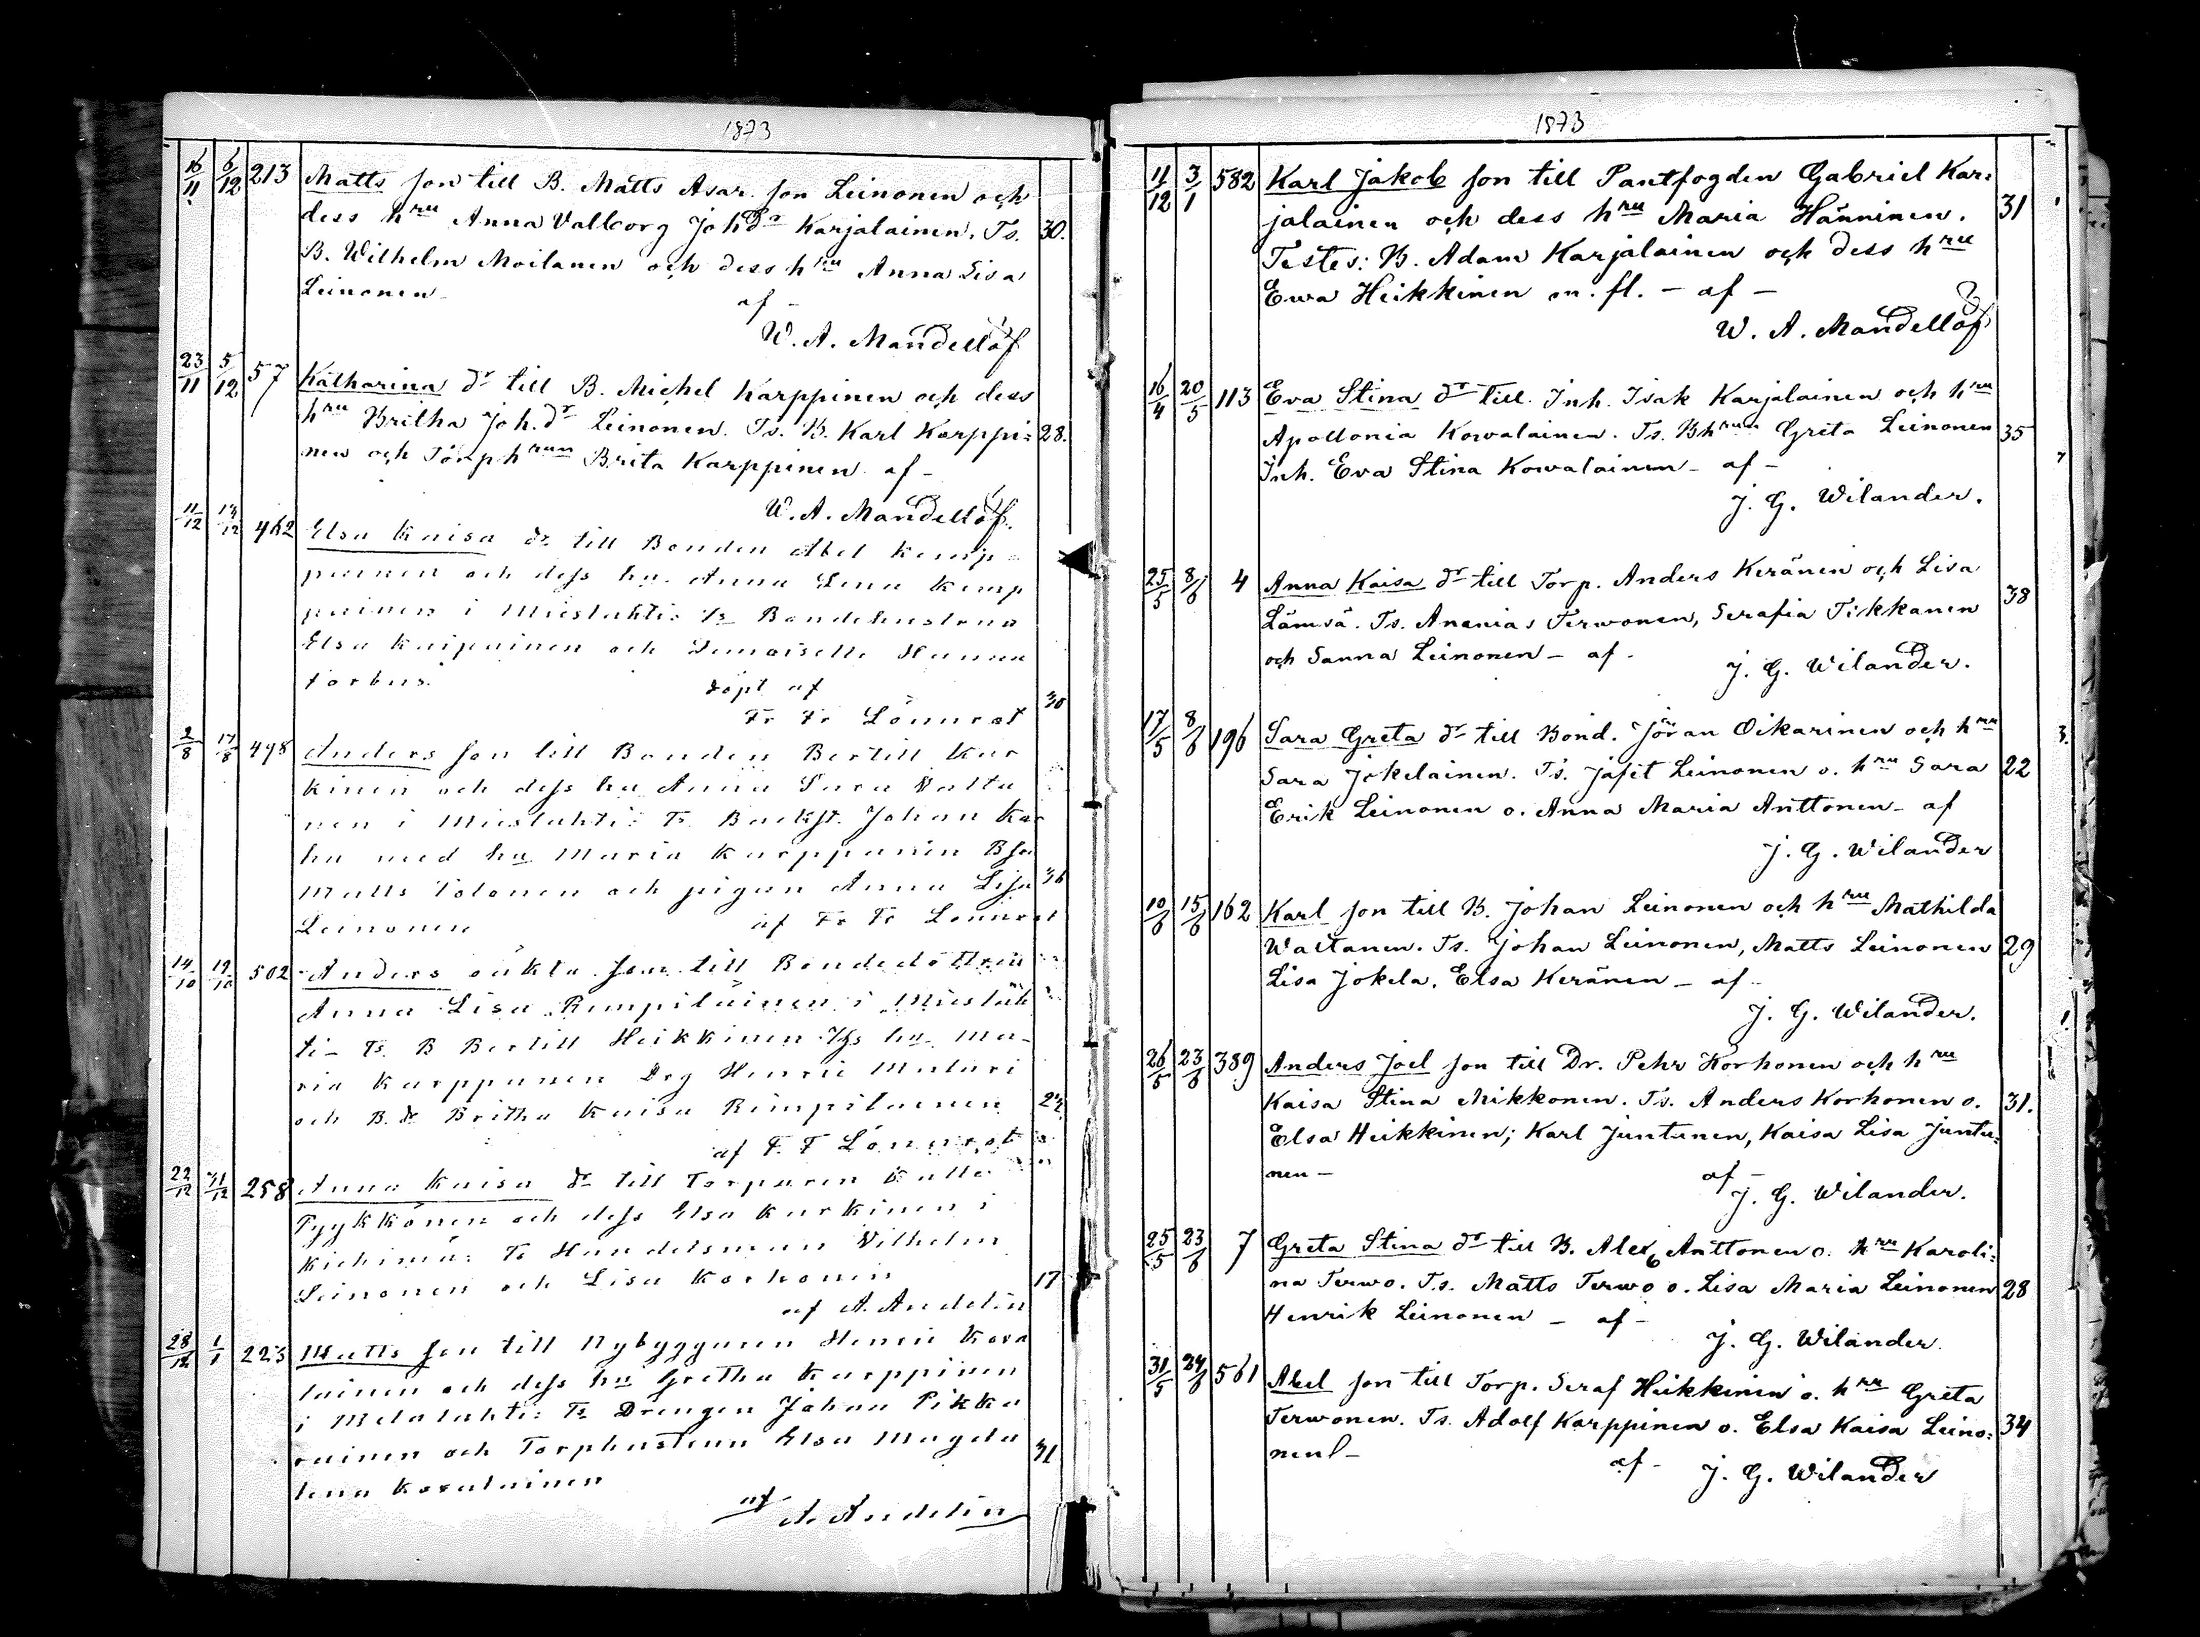 1873
16/11 6/12 213 Matts son till B. Matts Asar. son Leinonen och
dess hru Anna Vallborg Joh dr Karjalainen. Ts. 30.
B. Wilhelm Moilanen och dess hru Anna Lisa
Leinonen af –
W. A. Mandellöf
23/11 5/12 57 Katharina dr till B. Michel Karppinen och dess
hru Britha Joh. dr Leinonen. Ts. B. Karl Karppi= 28.
nen och Torphrun Brita Karppinen af –
W. A. Mandellöf.
11/12 462 Elsa Kaisa dr till Bonden Abel Kemp=
painen och dess hu. Anna Lena Kemp
painen i Mieslahti: Ts Bondehustrun
Elsa Kaipainen och Demoiselle Hanna
Forbus. döpt af
Fr Fr Lönnrot 30
2/8 17/8 498 Anders son till Bonden Bertill Kur
kinen och dess hu Anna Sara Valta
nen i Mieslahti: Ts. Backst. Johan Kar
hu med hu Maria Karppanen Bson
Matts Tolonen och pigan Anna Lisa 36
Leinonen af Fr Fr Lönnrot
14/10 19/10 502 Anders oäkta son till Bondedottren
Anna Lisa Rimpiläinen i Mieslah
ti – Ts. B Bertill Heikkinen dess hu Ma-
ria Karppanen Drg Henric Mulari
och B. dr Britha Kaisa Rimpilainen
af F. F Lönnrot
22/12 31/12 258 Anna Kaisa dr till Torparen Kalle
Pyykkönen och dess Elsa Kurkinen i
Kiehimä: Ts Handelsman Vilhelm
Leinonen och Lisa Korhonen 17
af A. Andelin
28/12 1/1 223 Matts son till Nybyggaren Henric Kova
lainen och dess hu Gretha Karppinen
i Melalahti: Ts Drengen Johan Pikka
rainen och Torphustrun Elsa Magda 31
lena Kovalainen
af A. Andelin
1873
11/12 3/1 582 Karl Jakob son till Pantfogden Gabriel Kar=
jalainen och dess hru Maria Hänninen. 31
Testes: B. Adam Karjalainen och dess hru
Ewa Heikkinen m. fl. – af –
W. A. Mandellöf
16/4 20/5 113 Eva Stina dr till Inh. Isak Karjalainen och hru
Apollonia Kowalainen. Ts. Bhrun Greta Leinonen 35
Inh. Eva Stina Kowalainen – af –
J. G. Wilander.
25/5 8/6 4 Anna Kaisa dr till Torp. Anders Keränen och Lisa
Lämsä. Ts. Ananias Terwonen, Serafia Tikkanen 38
och Sanna Leinonen – af –
J. G. Wilander.
17/5 8/6 196 Sara Greta dr till Bond. Jöran Oikarinen och hru
Sara Jokelainen. Ts. Jafet Leinonen o. hru Sara 22
Erik Leinonen o. Anna Maria Anttonen – af
J. G. Wilander
10/6 15/6 162 Karl son till B. Johan Leinonen och hru Mathilda
Waltanen. Ts. Johan Leinonen, Matts Leinonen 29
Lisa Jokela, Elsa Keränen – af –
J. G. Wilander.
26/5 23/6 389 Anders Joel son till Dr. Pehr Korhonen och hru
Kaisa Stina Mikkonen. Ts. Anders Korhonen o. 31.
Elsa Heikkinen; Karl Juntunen, Kaisa Lisa Juntu=
nen – af –
J. G. Wilander.
25/5 23/6 7 Greta Stina dr till B. Alex Anttonen o. hru Karoli=
na Terwo. Ts. Matts Terwo o. Lisa Maria Leinonen 28
Henrik Leinonen – af –
J. G. Wilander.
31/5 24/6 561 Abel son till Torp. Seraf Heikkinen o. hru Greta
Terwonen. Ts. Adolf Karppinen o. Elsa Kaisa Leino= 34
nen – af – J. G. Wilander